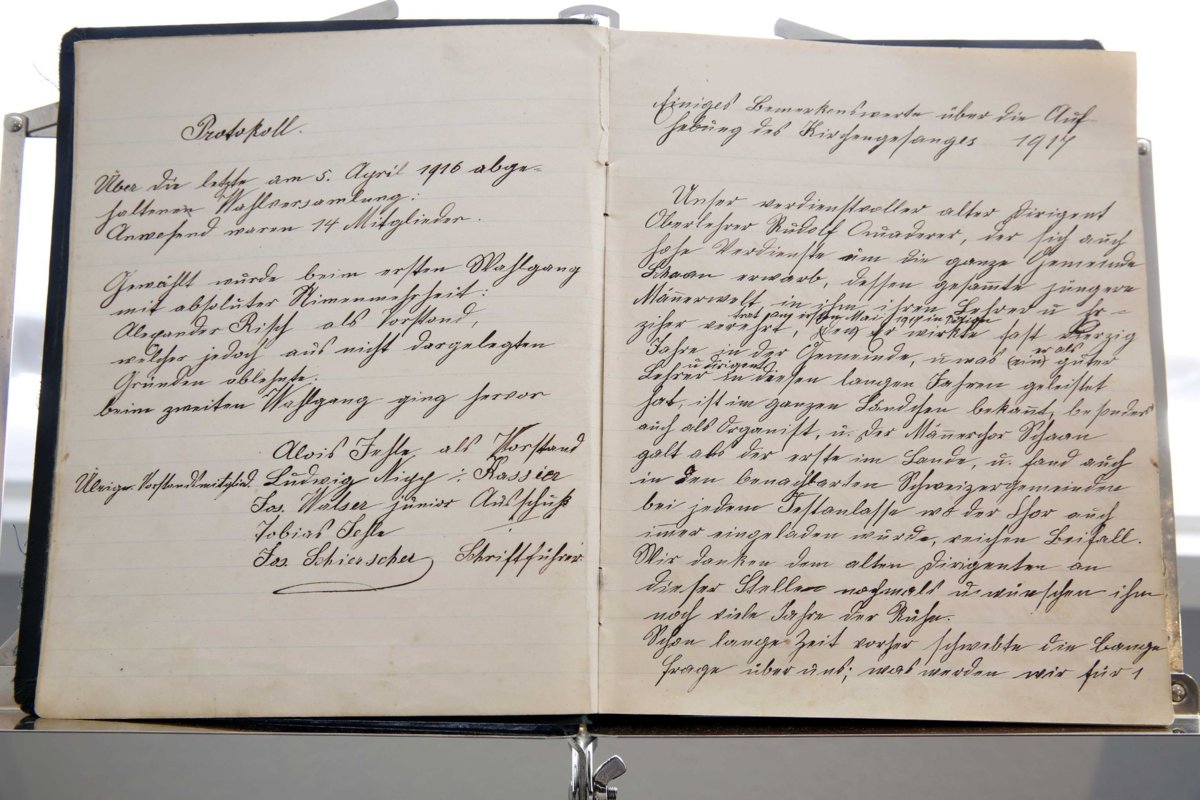 Protokoll.
Über die letzte am 5. April 1916 abge-
haltenen Wahlversamlung:
Anwesend waren 14 Mitglieder.
Gewählt wurde beim ersten Wahlgang
mit absoluter Stimenmehrheit:
Alexander Risch als Vorstand,
welcher jedoch aus nicht dargelegten
Gründen ablehnte.
beim zweiten Wahlgang ging hervor
Alois Jehle, als Vorstand
Übrige Vorstandsmitglied. Ludwig Nipp : Kassier
Jos. Walser junior Ausschuß
Tobias Jehle
Jos. Schierscher Schriftführer
Einiges Bemerkenswerte über die Auf-
hebung des Kirchengesanges 1917
Unser verdienstvoller alter Dirigent
Oberlehrer Rudolf Quaderer, der sich auch
hohe Verdienste um die ganze Gemeinde
Schaan erwarb, dessen gesam̄te jüngere
Männerwelt in ihm ihren Lehrer u Er-
zieher verehrt, Er wirkte fast vierzig
Jahre in der Gemeinde, u was (ein) er als guter
Lehrer u Dirigent in diesen langen Jahren geleistet
hat, ist im ganzen Ländchen bekan̄t, besonders
auch als Organist, u. der Män̄erchor Schaan
galt als der erste im Lande, u. fand auch
in den benachbarten Schweizergemeinden
bei jedem Festanlasse wo der Chor auch
im̄er eingeladen wurde, reichen Beifall.
Wir danken dem alten Dirigenten an
dieser Stelle nochmals u wünschen ihm
noch viele Jahre der Ruhe.
Schon lange Zeit vorher schwebte die bange
Frage über uns; was werden wir für